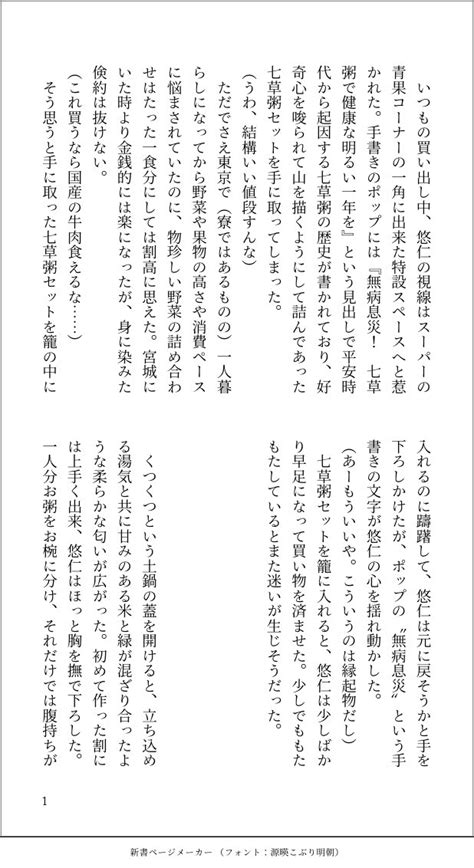 いつもの買い出し中、悠仁の視線はスーパーの
青果コーナーの一角に出来た特設スペースへと惹
かれた。手書きのポップには『無病息災！　七草
粥で健康な明るい一年を』という見出しで平安時
代から起因する七草粥の歴史が書かれており、好
奇心を唆られて山を描くようにして詰んであった
七草粥セットを手に取ってしまった。
(うわ、結構いい値段すんな)
ただでさえ東京で(寮ではあるものの)一人暮
らしになってから野菜や果物の高さや消費ペース
に悩まされていたのに、物珍しい野菜の詰め合わ
せはたった一食分にしては割高に思えた。宮城に
いた時より金銭的には楽になったが、身に染みた
倹約は抜けない。
(これ買うなら国産の牛肉食えるな……)
そう思うと手に取った七草粥セットを籠の中に
入れるのに躊躇して、悠仁は元に戻そうかと手を
下ろしかけたが、ポップの〝無病息災〟という手
書きの文字が悠仁の心を揺れ動かした。
(あーもういいや。こういうのは縁起物だし)
七草粥セットを籠に入れると、悠仁は少しばか
り早足になって買い物を済ませた。少しでももた
もたしているとまた迷いが生じそうだった。
くつくつという土鍋の蓋を開けると、立ち込め
る湯気と共に甘みのある米と緑が混ざり合ったよ
うな柔らかな匂いが広がった。初めて作った割に
は上手く出来、悠仁はほっと胸を撫で下ろした。
一人分お粥をお椀に分け、それだけでは腹持ちが
1
新書ページメーカー（フォント：源暎こぶり明朝）